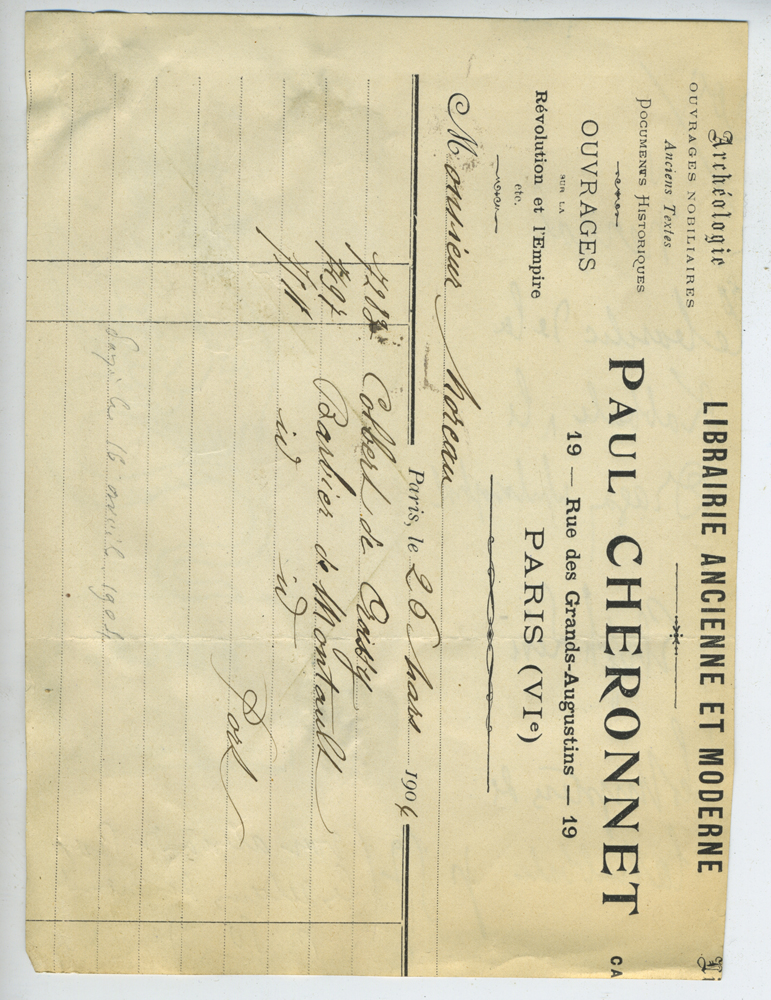 Archéologie
OUVRAGES NOBILIAIRES
Anciens Textes
DOCUMENTS HISTORIQUES
OUVRAGES
SUR LA
Révolution et l'Empire
etc.
LIBRAIRIE ANCIENNE ET MODERNE
PAUL CHERONNET
19 — Rue des Grands-Augustins — 19
PARIS (VIe)
CA
Monsieur Moreau
Paris, le 26 Mars 1904
Colbert de Croissy
Barbier de Montault
id id
Port